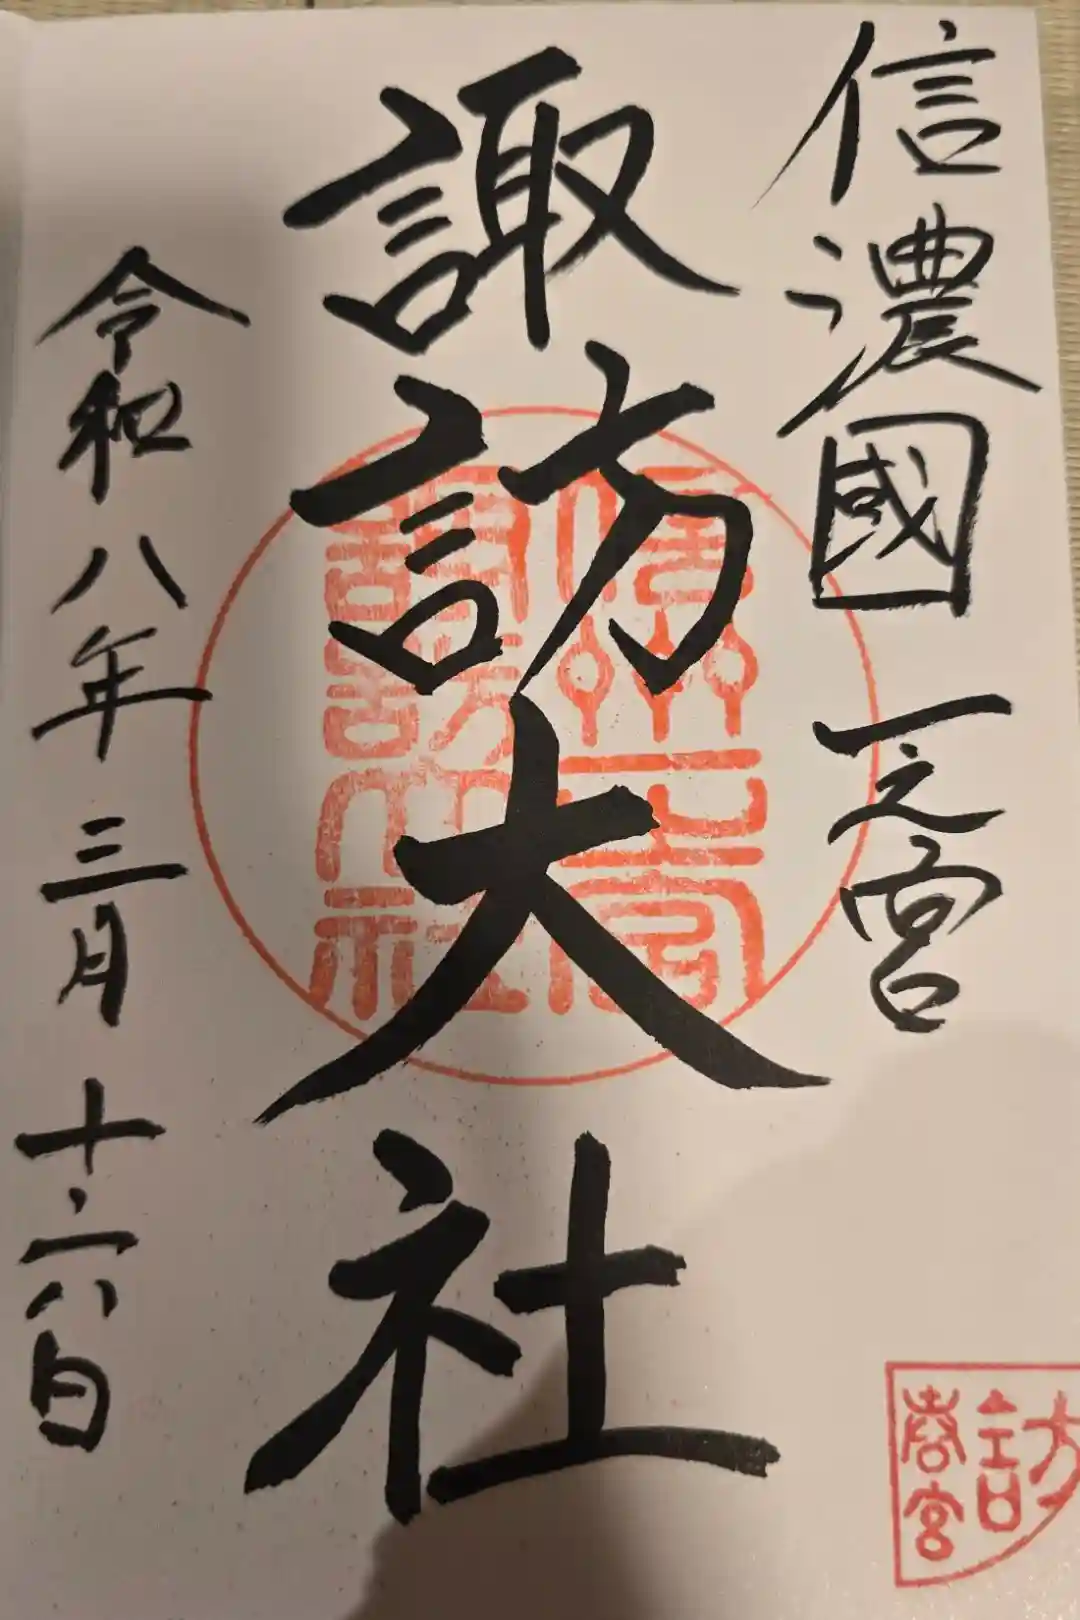 信濃國一之宮
諏訪大社
令和八年三月十六日
信州一之宮
諏訪大社
訪
春宮